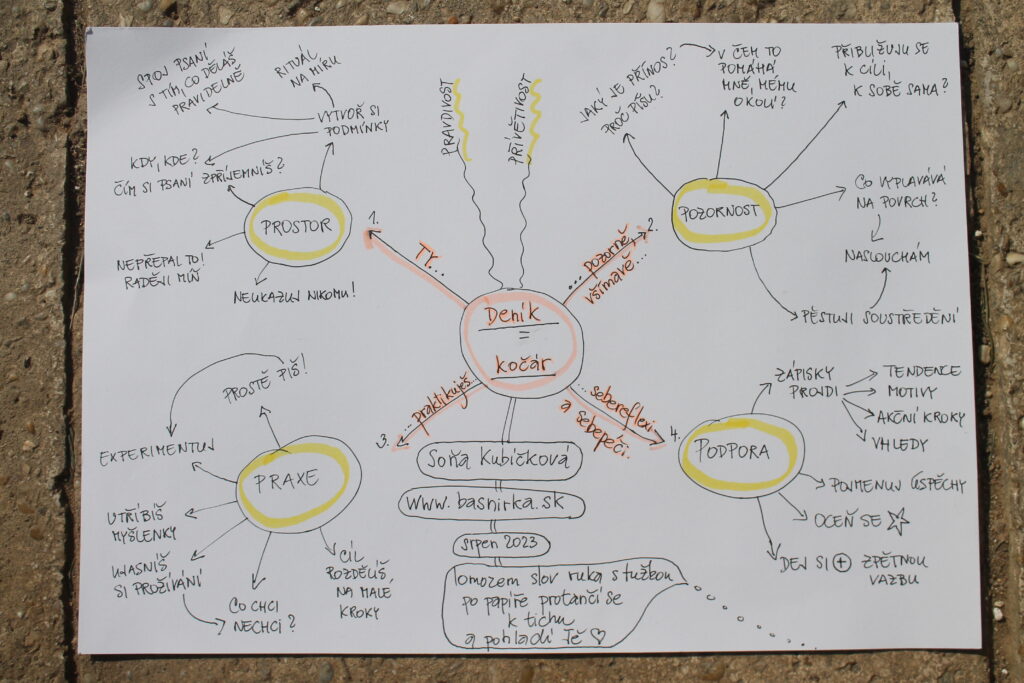 Deník
=
kočár
PRAVDIVOST
PŘÍVĚTIVOST
1.
TY...
PROSTOR
SPOJ PSANÍ
S TÍM, CO DĚLÁŠ
PRAVIDELNĚ
RITUÁL
NA MÍRU
VYTVOŘ SI
PODMÍNKY
KDY, KDE?
ČÍM SI PSANÍ ZPŘÍJEMNÍŠ?
NEPŘEPAL TO!
RADĚJI MÍŇ
NEUKAZUJ NIKOMU!
2.
... pozorně,
všímavě...
POZORNOST
JAKÝ JE PŘÍNOS?
PROČ PÍŠU?
V ČEM TO
POMÁHÁ
MNĚ, MÉMU
OKOLÍ?
PŘIBLIŽUJU SE
K CÍLI,
K SOBĚ SAMA?
CO VYPLAVÁVÁ
NA POVRCH?
NASLOUCHÁM
PĚSTUJI SOUSTŘEDĚNÍ
3.
...praktikuješ
PRAXE
PROSTĚ PIŠ!
EXPERIMENTUJ
UTŘÍBÍŠ
MYŠLENKY
UJASNÍŠ
SI PROŽÍVÁNÍ
CO CHCI
NECHCI?
CÍL
ROZDĚLÍŠ
NA MALÉ
KROKY
4.
...sebereflexi
a sebepéči.
PODPORA
ZÁPISKY
PROJDI
TENDENCE
MOTIVY
AKČNÍ KROKY
VHLEDY
POJMENUJ ÚSPĚCHY
OCEŇ SE
DEJ SI + ZPĚTNOU
VAZBU
Soňa Kubičková
www.basnirka.sk
srpen 2023
Tomozem slov ruka s tužkou
po papíře protančí se
k tichu
a pohladí Tě ♡